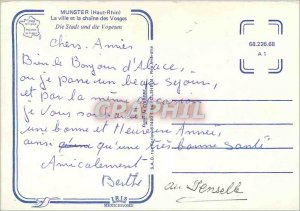 MUNSTER (Haut-Rhin)
La ville et la chaîne des Vosges
Die Stadt und die Vogesen
68.226.68
A 1
Chers Amis
Bien le Bonjour d'Alsace,
où je passe un beau séjour,
et par la même occasion
je Vous
une bonne et Heureuse Année,
ainsi qu'une très bonne Santé
Amicalement
Berthe
PHOTO PRESTIGE
IRIS